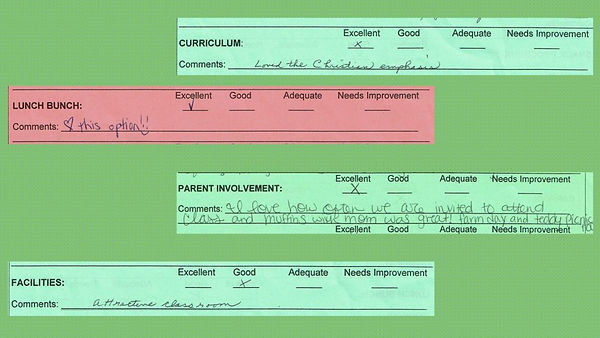 Excellent Good Adequate Needs Improvement
CURRICULUM: x
Comments: Loved the Christian emphasis
Excellent Good Adequate Needs Improvement
LUNCH BUNCH: ✓
Comments: ♡ this option!!
Excellent Good Adequate Needs Improvement
PARENT INVOLVEMENT: X
Comments: I love how often we are invited to attend
class and muffins with mom was great! farm day and teddy picnic
Excellent Good Adequate Needs Improvement
Excellent Good Adequate Needs Improvement
FACILITIES: x
Comments: attractive classroom